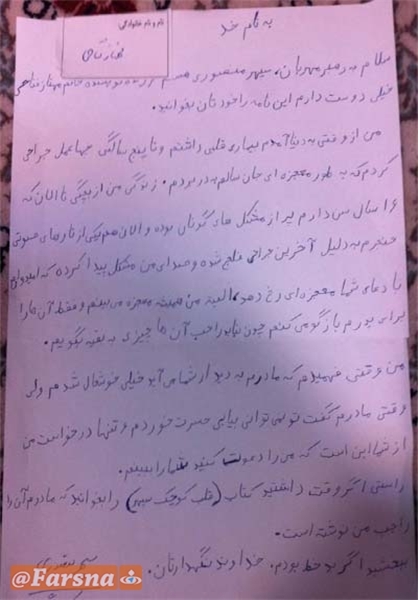 به نام خدا
نام و نام خانوادگی:
سلام به رهبر مهربان، سپهر منصوری هستم فرزند نویسنده خانم مهناز فتاحی
خیلی دوست دارم این نامه را خودتان بخوانید.
من از وقتی به دنیا آمدم بیماری قلبی داشتم و تا پنج سالگی چهار عمل جراحی
کردم که به طور معجزه ای جان سالم به در بردم. زندگی من از بچگی تا الان که
۱۶ سال سن دارم پر از مشکل های گوناگون بوده و الان هم یکی از تارهای صوتی
حنجره ام به دلیل آخرین جراحی فلج شده و صدای من مشکل پیدا کرده که امیدوارم
با دعای شما معجزه ای رخ دهد، البته من همیشه معجزه می بینم و فقط آن ها را
برای پدرم بازگو می کنم چون نباید راجب آن ها چیزی به بقیه بگویم.
من وقتی فهمیدم که مادرم به دیدار شما می آید خیلی خوشحال شدم ولی
وقتی مادرم گفت تو نمی توانی بیایی حسرت خوردم و تنها درخواست من
از شما این است که من را دعوت کنید شما را ببینم.
راستی اگر وقت داشتید کتاب (قلب کوچک سپهر) را بخوانید که مادرم آن را
راجب من نوشته است.
ببخشید اگر بد خط بودم. خداوند نگهدارتان.
@Farsna